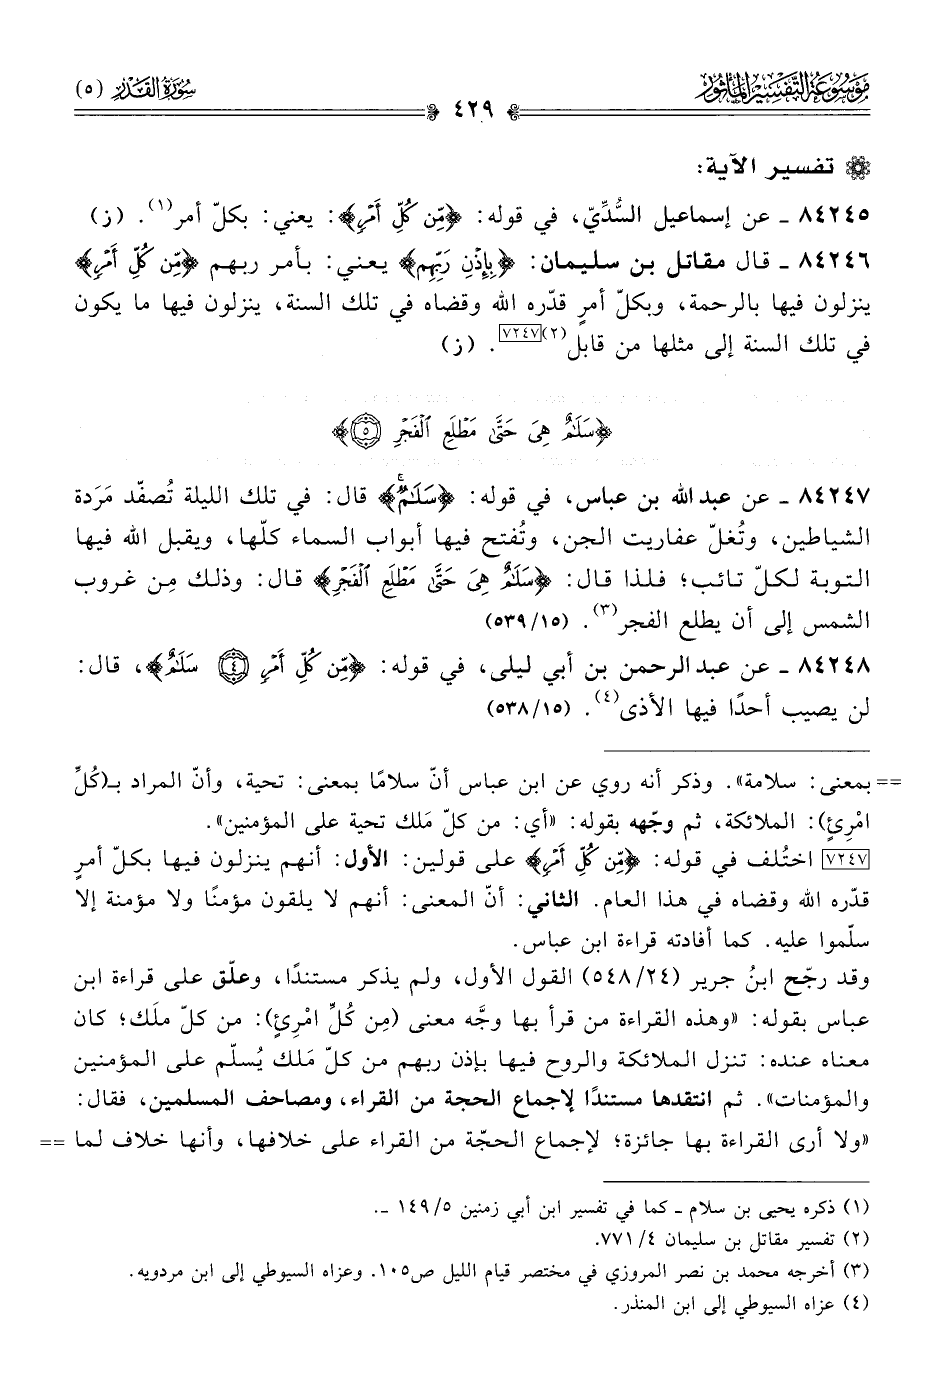 مَوْسُوعَةُ التَّفْسِيرِ المَأْثُور
٤٢٩
سُورَةُ القَدْرِ (٥)
تفسير الآية:
٨٤٢٤٥ ـ عن إسماعيل السُّدِّيّ، في قوله: ﴿مِّن كُلِّ أَمْرٍ﴾: يعني: بكلّ أمر(١). (ز)
٨٤٢٤٦ ـ قال مقاتل بن سليمان: ﴿بِإِذْنِ رَبِّهِم﴾ يعني: بأمر ربهم ﴿مِّن كُلِّ أَمْرٍ﴾
ينزلون فيها بالرحمة، وبكلّ أمرٍ قدّره الله وقضاه في تلك السنة، ينزلون فيها ما يكون
في تلك السنة إلى مثلها من قابل(٢)[٧٢٤٧]. (ز)
﴿سَلَٰمٌ هِىَ حَتَّىٰ مَطْلَعِ ٱلْفَجْرِ ٥﴾
٨٤٢٤٧ ـ عن عبد الله بن عباس، في قوله: ﴿سَلَٰمٌ﴾ قال: في تلك الليلة تُصفّد مَرَدة
الشياطين، وتُغلّ عفاريت الجن، وتُفتح فيها أبواب السماء كلّها، ويقبل الله فيها
التوبة لكلّ تائب؛ فلذا قال: ﴿سَلَٰمٌ هِىَ حَتَّىٰ مَطْلَعِ ٱلْفَجْرِ﴾ قال: وذلك مِن غروب
الشمس إلى أن يطلع الفجر(٣). (٥٣٩/١٥)
٨٤٢٤٨ ـ عن عبد الرحمن بن أبي ليلى، في قوله: ﴿مِّن كُلِّ أَمْرٍ ٤ سَلَٰمٌ﴾، قال:
لن يصيب أحدًا فيها الأذى(٤). (٥٣٨/١٥)
== بمعنى: سلامة». وذكر أنه روي عن ابن عباس أنّ سلامًا بمعنى: تحية، وأنّ المراد بـ(كُلِّ
امْرِئٍ): الملائكة، ثم وجّهه بقوله: «أي: من كلّ مَلك تحية على المؤمنين».
[٧٢٤٧] اختُلف في قوله: ﴿مِّن كُلِّ أَمْرٍ﴾ على قولين: الأول: أنهم ينزلون فيها بكلّ أمرٍ
قدّره الله وقضاه في هذا العام. الثاني: أنّ المعنى: أنهم لا يلقون مؤمنًا ولا مؤمنة إلا
سلّموا عليه. كما أفادته قراءة ابن عباس.
وقد رجّح ابنُ جرير (٥٤٨/٢٤) القول الأول، ولم يذكر مستندًا، وعلّق على قراءة ابن
عباس بقوله: «وهذه القراءة من قرأ بها وجَّه معنى (مِن كُلِّ امْرِئٍ): من كلّ ملَك؛ كان
معناه عنده: تنزل الملائكة والروح فيها بإذن ربهم من كلّ مَلك يُسلّم على المؤمنين
والمؤمنات». ثم انتقدها مستندًا لإجماع الحجة من القراء، ومصاحف المسلمين، فقال:
«ولا أرى القراءة بها جائزة؛ لإجماع الحجّة من القراء على خلافها، وأنها خلاف لما ==
(١) ذكره يحيى بن سلام ـ كما في تفسير ابن أبي زمنين ١٤٩/٥ ـ.
(٢) تفسير مقاتل بن سليمان ٧٧١/٤.
(٣) أخرجه محمد بن نصر المروزي في مختصر قيام الليل ص١٠٥. وعزاه السيوطي إلى ابن مردويه.
(٤) عزاه السيوطي إلى ابن المنذر.